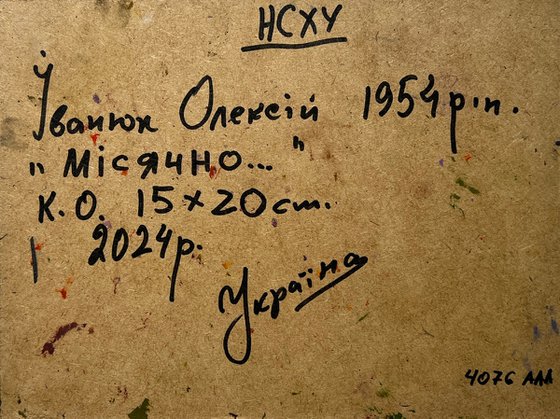 НСХУ
Іванюк Олексій 1954 р.н.
„Місячно..."
К.О. 15×20 cm.
2024р.
Україна
4076 ААА